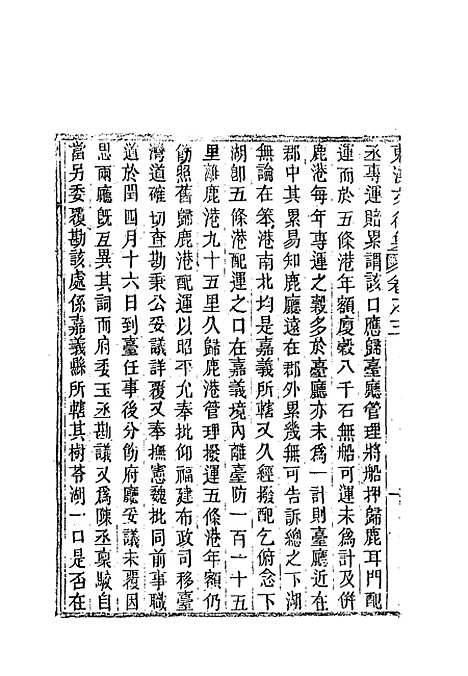 東溟文後集 卷之三
丞專運賠累謂該口應歸臺廳管理將船押歸鹿耳門配
運而於五條港年額廈穀八千石無船可運未為計及併
鹿港每年專運之穀多於臺廳亦未為一計則臺廳近在
郡中其累易知鹿廳遠在郡外累幾無可告訴總之下湖
無論在笨港南北均是嘉義所轄又久經撥配乞俯念下
湖卽五條港配運之口在嘉義境內離臺防一百一十五
里離鹿港九十五里久歸鹿港管理撥運五條港年額仍
飭照舊歸鹿港配運以昭平允奉批仰福建布政司移臺
灣道確切查勘秉公妥議詳覆又奉撫憲魏批同前事職
道於閏四月十六日到臺任事後分飭府廳妥議未覆因
思兩廳旣互異其詞而府委玉丞勘議又為陳丞稟駮自
當另委覆勘該處係嘉義縣所轄其樹苓湖一口是否在